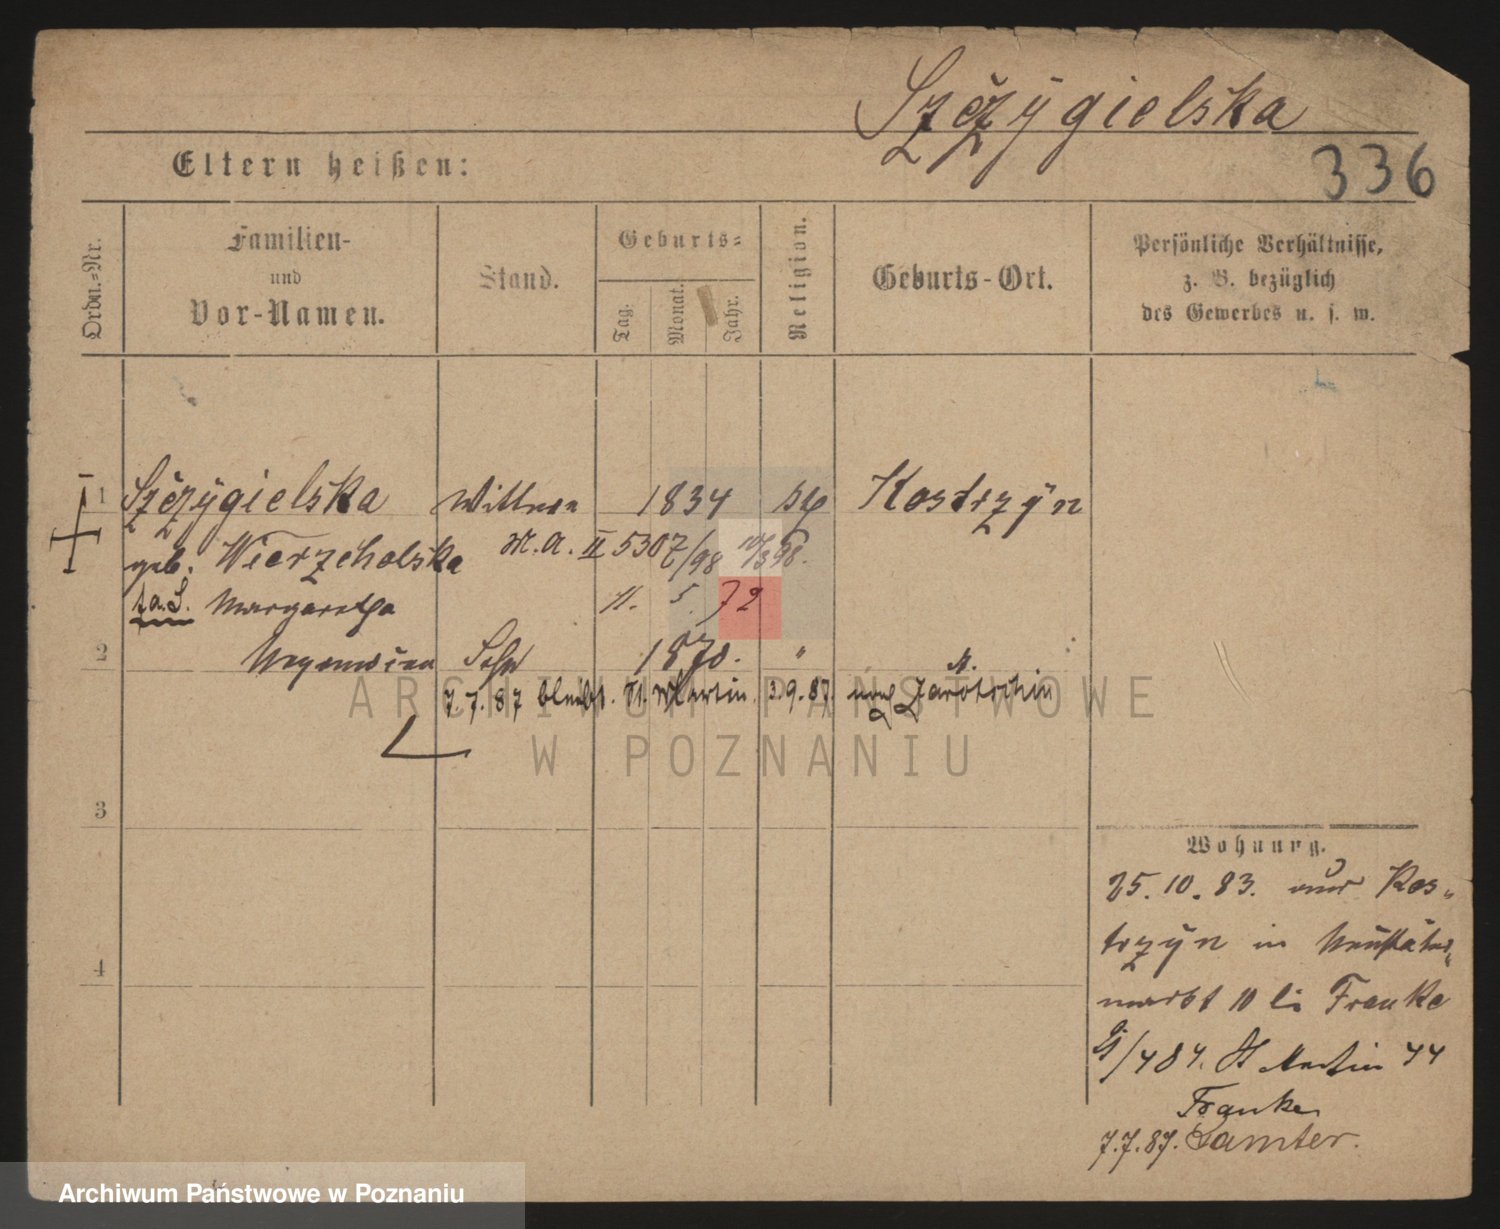 Szczÿgielska
336
Eltern heißen:
Ordn.-Nr.
Familien-
und
Vor-Namen.
Stand.
Geburts-
Tag.
Monat.
Jahr.
Religion.
Geburts-Ort.
Persönliche Verhältnisse,
z. B. bezüglich
des Gewerbes u. s. w.
1 Szczÿgielska Wittwe 1834 Kostrzÿn
geb. Wierzcholska M. A. II 5307/98 98.
Margaretha 11. 5. 72
2 Sohn 1870. "
7.7.87 bleibt. St. Martin. 3.9.87. nach Jarotschin
3
4
Wohnung.
25.10.83. aus Kos-
trzÿn in Neustädter-
markt 10 bei Franke
St Martin 44
Franke
7.7.87. Samter.
ARCHIWUM PAŃSTWOWE
W POZNANIU
Archiwum Państwowe w Poznaniu